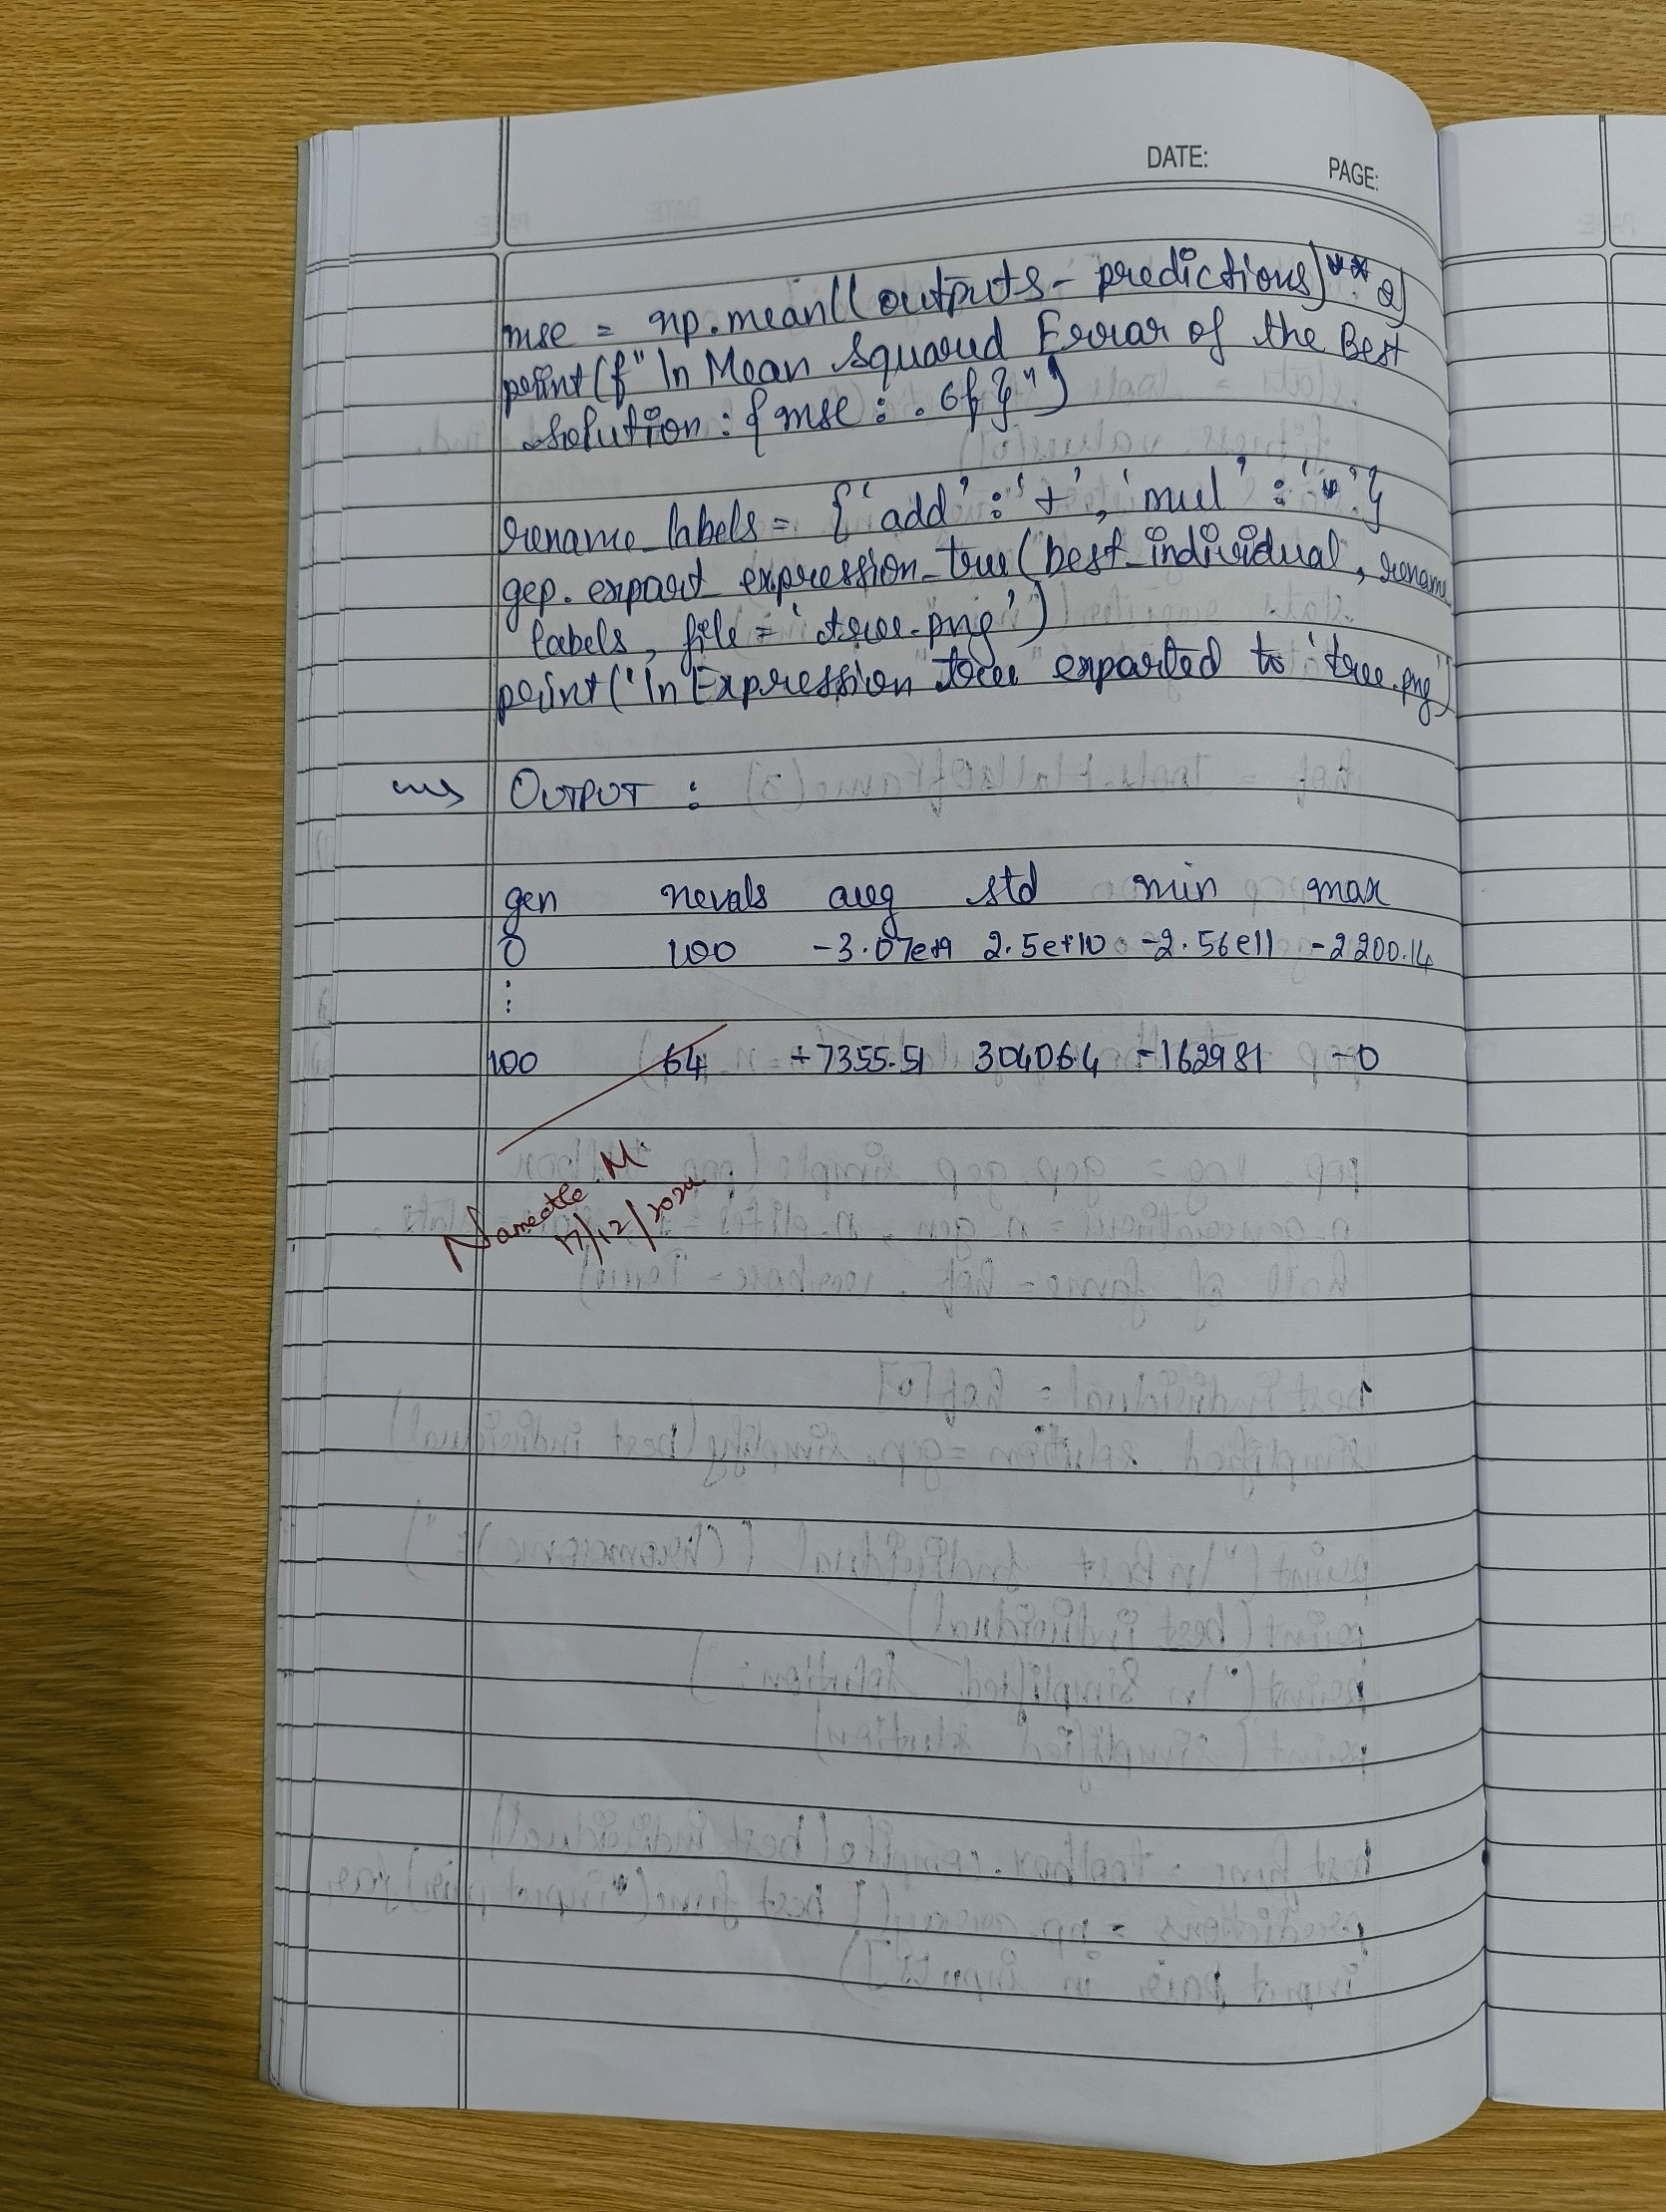 DATE:
PAGE:
mse = np.mean((outputs - predictions)**2)
print(f"\n Mean Squared Error of the Best
solution: {mse: .6f}")
rename_labels = {'add' : '+', 'mul' : '*'}
gep. export_expression_tree(best_individual, rename_
labels, file = 'tree.png')
print("\n Expression tree exported to 'tree.png')
OUTPUT :
gen nevals avg std min max
0 100 -3.07e+9 2.5e+10 -2.56e11 -2200.14
:
100 64 +7355.51 304064 -162981 -0
17/12/2024